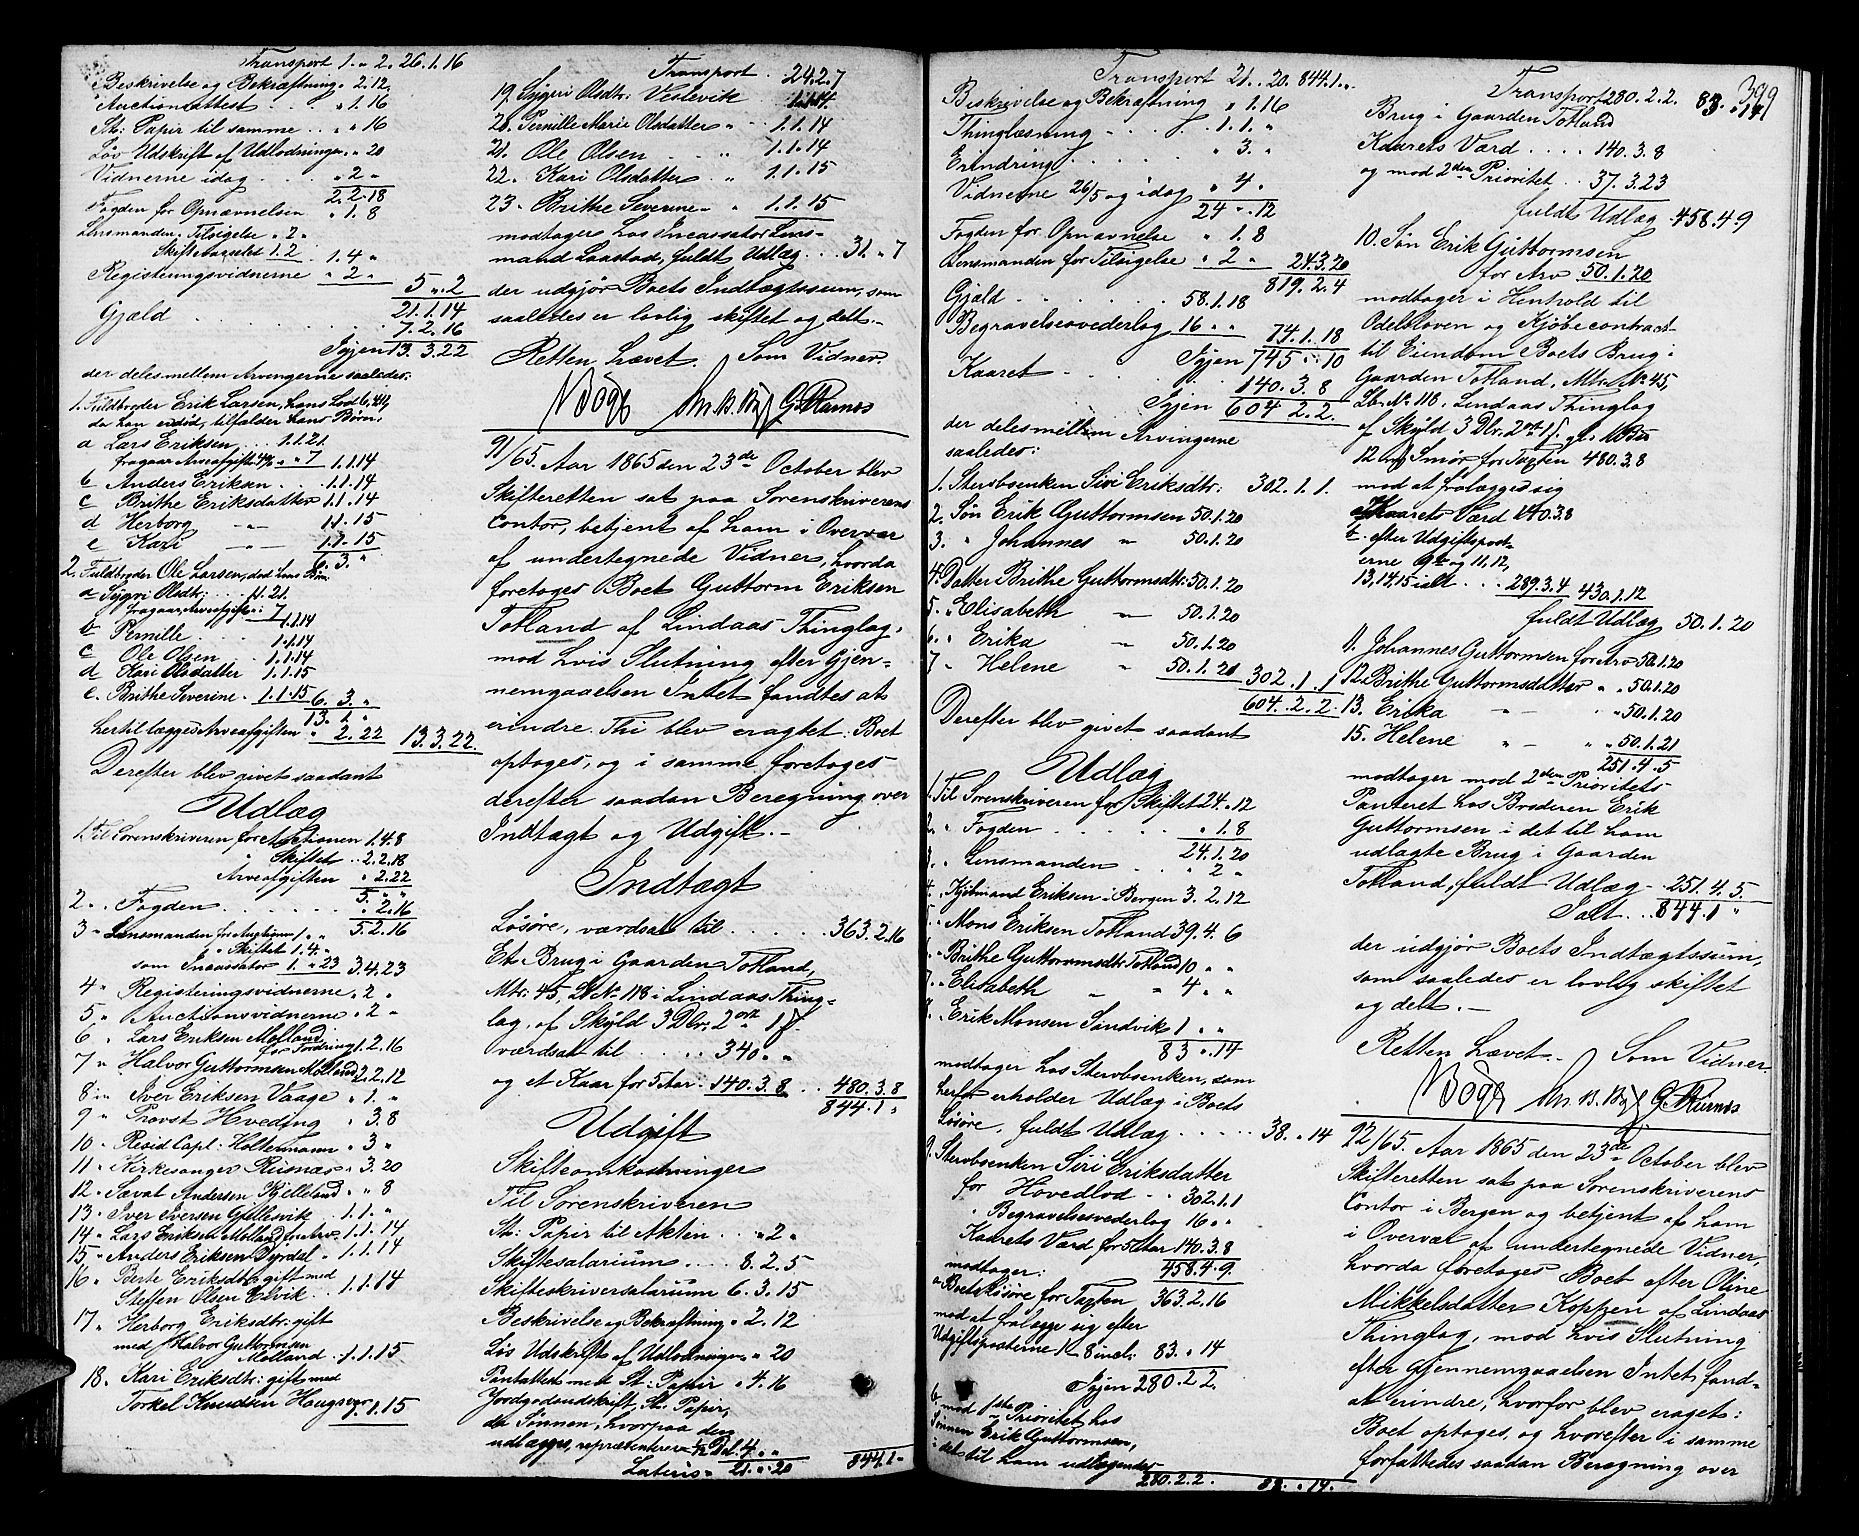 Transport 1. " 2. 26.1.16
Beskrivelse og Bekræftning " 2.12.
Auctionsattest . . . " 1.16
St: Papir til samme . . " " 16
Løv Udskrift af Udlodningen " " 20
Vidnerne idag . . . " 2 "
2.2.18
Fogden for Opnævnelsen " 1.8
Lensmanden, Tilsigelse " 2 "
Skiftevarslet 1.2
1.4 "
Registeringsvidnerne " 2 "
5 " 2
21.1.14
Gjæld . . . 7.2.16
Igjen 13.3.22
der deles mellem Arvingerne saaledes:
1. Fuldbroder Erik Larsen, hans Lod 6,44,
da han er død, tilfalder hans Børn.
a Lars Eriksen, . . . 1.1.21
fragaar Arveafgift 4% " " 7 1.1.14
b Anders Eriksen . . 1.1.14
c Brithe Eriksdatter 1.1.14
d Herborg — " — 1.1.15
e Kari — " — 1.1.15
6.3. "
2. Fuldbroder Ole Larsen, død, hans Børn
a Sygri Olsdtr: . . . 1.1.21.
fragaar Arveafgift: " 7 1.1.14
b Pernille . . 1.1.14
c Ole Olsen . . 1.1.14
d Kari Olsdatter 1.1.15
e. Brithe Severine . 1.1.15 6.3. "
13.1 "
hertil lægges Arveafgiften " 2.22 13.3.22
Derefter blev givet saadant
Udlæg
1. Til Sorenskriveren for Auctionen 1.4.8
" Skiftet . . 2.2.18
" Arveafgiften " 2.22
5. " "
2 " . Fogden . . . " 2.16
5.2.16
3 " Lensmanden for Auctionen 1 " "
" Skiftet 1.4. "
som Incassator 1. " 23 3.4.23
4 " Registeringsvidnerne " 2 "
5 " Auctionsvidnerne " 2 "
6 " Lars Eriksen Molland
for Fordring 1.2.16
7 " Halvor Guttormsen Molland 2.2.12
8 " Iver Eriksen Vaage " 1. "
9 " Provst Hveding " 3.8
10 " Resid Capl: Holtermann " 3 "
11 " Kirkesanger Risnæs " 3.20
12 " Sævat Andersen Kjelleland " " 8
13 " Iver Iversen Gjellesvik 1.1. "
14 " Lars Eriksen Molland for Arv 1.1.14
15 " Anders Eriksen Dyrdal " 1.1.14
16 " Berte Eriksdtr: gift med
Steffen Olsen Elvik . . 1.1.14
17 " Herborg Eriksdtr: gift
med Halvor Guttormsen
Molland . . 1.1.15
18. " Kari Eriksdtr: gift med
Torkel Knudsen Hougsvær 1.1.15
Transport . 24.2.7
19. Sygri Olsdtr: Veslevik 1.1.14
20. Pernille Marie Olsdatter " 1.1.14
21. Ole Olsen . . " 1.1.14
22. " Kari Olsdatter " 1.1.15
23. " Brithe Severine " 1.1.15
modtager hos Incassator Lens-
mand Laastad, fuldt Udlæg . . 31. " 7
der udgjør Boets Indtægtssum, som
saaledes er lovlig skiftet og delt. –
Retten hævet. Som Vidner
91/65. Aar 1865 den 23de October blev
Skifteretten sat paa Sorenskriverens
Contor, betjent af ham i Overvær
af undertegnede Vidner, hvorda
foretoges Boet Guttorm Eriksen
Totland af Lindaas Thinglag,
mod hvis Slutning efter Gjen-
nemgaaelsen Intet fandtes at
erindre. Thi blev eragtet: Boet
optages, og i samme foretoges
derefter saadan Beregning over
Indtægt og Udgift. –
Indtægt
Løsøre, værdsat til . . . 363.2.16
Et Brug i Gaarden Totland,
Mtr: 45, Lb No 118 i Lindaas Thing-
lag, af Skyld 3 Dlr. 2 ort 1 ß.
værdsat til . . . 340 " "
og et Kaar for 5 Aar . 140.3.8 . . 480.3.8
844.1. "
Udgift
Skifteomkostninger
Til Sorenskriveren
St: Papir til Akten . . " 2 "
Skiftesalarium . . . 8.2.5
Skifteskriversalarium 6.3.15
Beskrivelse og Bekræftning " 2.12
Løs Udskrift af Udlodningen " " 20
Panteattest med St: Papir " 4.16
Jordgodsudskrift, St. Papir,
da Sønnen, hvorpaa den
udlægges, repræsenterer ½ Dl. 4 " "
Lateris " 21. " 20 844.1 "
Transport 21. " 20. 844.1. "
Beskrivelse og Bekræftning " 1.16
Thinglæsning . . . 1.1. "
Erindring . . . . " 3. "
Vidnerne 26/5 og idag " 4 "
24 " . 12
Fogden for Opnævnelse " 1.8
Lensmanden for Tilsigelse " 2 " 24.3.20
819.2.4
Gjæld . . . . 58.1.18
Begravelsesvederlag 16 " " 74.1.18
Igjen 745 " 10
Kaaret . . . 140.3.8
Igjen 604.2.2.
der deles mellem Arvingerne
saaledes:
1. Stervboenken Siri Eriksdtr: 302.1.1.
2. Søn Erik Guttormsen 50.1.20
3. " Johannes " 50.1.20
4. Datter Brithe Guttormsdtr: 50.1.20
5. " Elisabeth — 50.1.20
6. " Erika " 50.1.20
7 " Helene " 50.1.20 302.1.1
604.2.2
Derefter blev givet saadant
Udlæg
1. Til Sorenskriveren for Skiftet 24. " 12
2. " Fogden . . . . " 1.8
24.1.20
3. " Lensmanden . . " 2 "
4. " Kjøbmand Eriksen i Bergen 3.2.12
5. " Mons Eriksen Totland 39.4.6
6. " Brithe Guttormsdtr: Totland 10 " "
7. " Elisabeth — " 4 " "
8. " Erik Monsen Sandvik 1 " "
83 " . 14
modtager hos Stervboenken, som
herfor erholder Udlæg i Boets
Løsøre, fuldt Udlæg . . . . . 38. " 14
9. Stervboenken Siri Eriksdatter
for Hovedlod . . 302.1.1
" Begravelsesvederlag 16 " "
Kaarets Værd for 5 Aar 140.3.8
modtager: 458.4.9.
a Boets Løsøre for Taxten 363.2.16
mod at fralægge sig efter
Udgiftsposterne 1–8 incl: 83. " 14
Igjen 280.2.2.
b mod 1ste Prioritet hos
Sønnen Erik Guttormsen,
i det til ham udlagende
280.2.2. 83. " 14.
399
Transport 280.2.2. 83. " 14
Brug i Gaarden Totland
Kaarets Værd . . . . 140.3.8
og mod 2den Prioritet . . 37.3.23
fuldt Udlæg 458.4.9
10. Søn Erik Guttormsen
for Arv 50.1.20
modtager i Henhold til
Odelsloven og Kjøbecontract
til Eiendom Boets Brug i
Gaarden Totland, Mtr. No 45,
Lb: No 118, Lindaas Thinglag
af Skyld 3 Dlr. 2 ort 1 ß.
12 Smør for Taxten 480.3.8
mod at fralægge sig
a Kaarets Værd 140.3.8
b. efter Udgiftspost-
erne 9de og 11, 12,
13, 14, 15 ialt . . . 289.3.4 430.1.12
fuldt Udlæg 50.1.20
11. Johannes Guttormsen for Arv 50.1.20
12. Brithe Guttormsdatter " " 50.1.20
13. Erika — " — " " 50.1.20
15. Helene " — " " 50.1.21
251.4.5
modtager mod 2den Prioritets
Panteret hos Broderen Erik
Guttormsen i det til ham
udlagte Brug i Gaarden
Totland, fuldt Udlæg . . 251.4.5.
Ialt . . . 844.1 "
der udgjør Boets Indtægtssum,
som saaledes er lovlig skiftet
og delt. –
Retten hævet. Som Vidner.
92/65. Aar 1865 den 23de October blev
Skifteretten sat paa Sorenskriverens
Contor i Bergen og betjent af ham
i Overvær af undertegnede Vidner,
hvorda foretoges Boet efter Oline
Mikkelsdatter Koppen af Lindaas
Thinglag, mod hvis Slutning
efter Gjennemgaaelsen Intet fand-
at erindre, hvorfor blev eraget:
Boet optoges, og hvorefter i samme
forfattedes saadan Beregning over